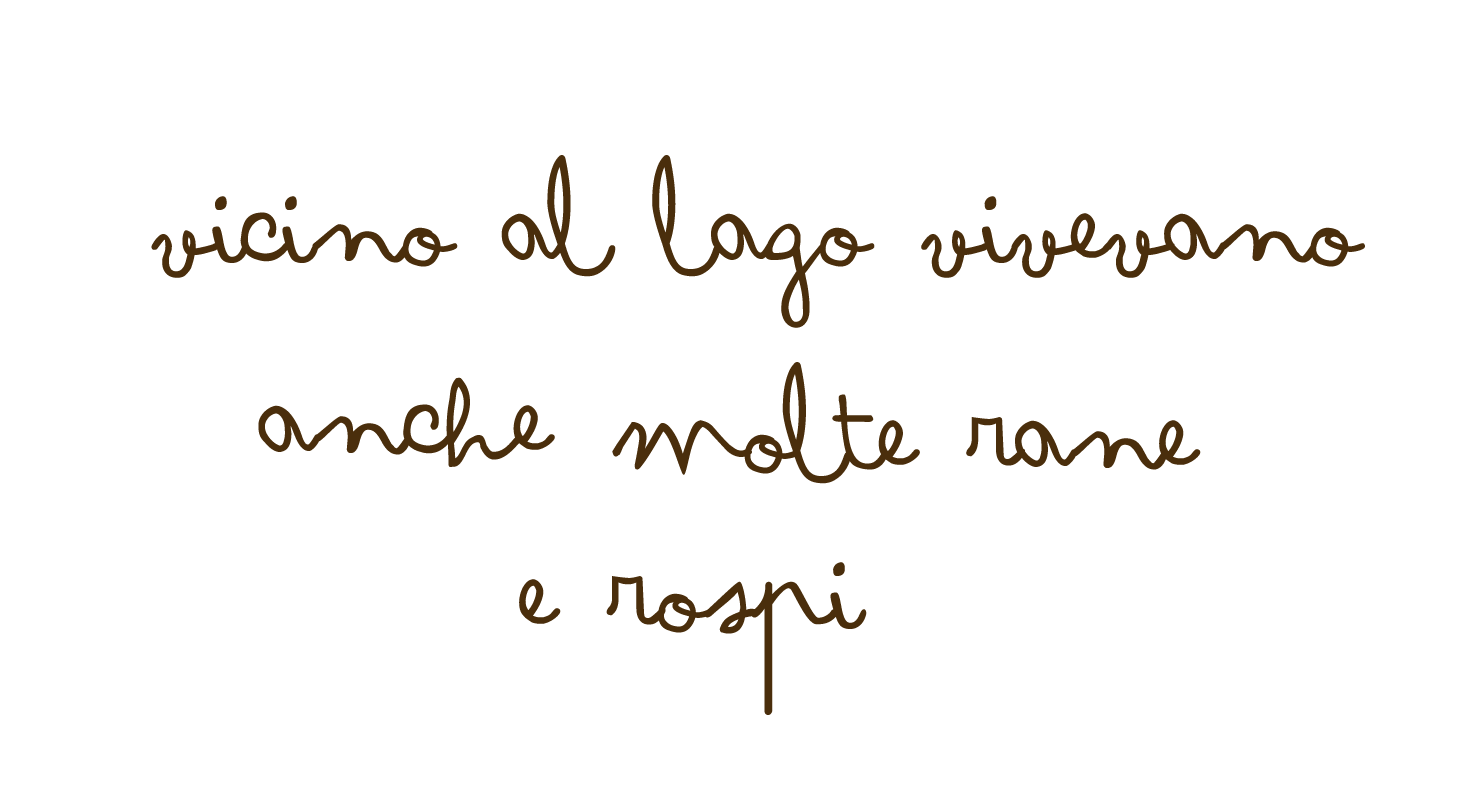 vicino al lago vivevano
anche molte rane
e rospi